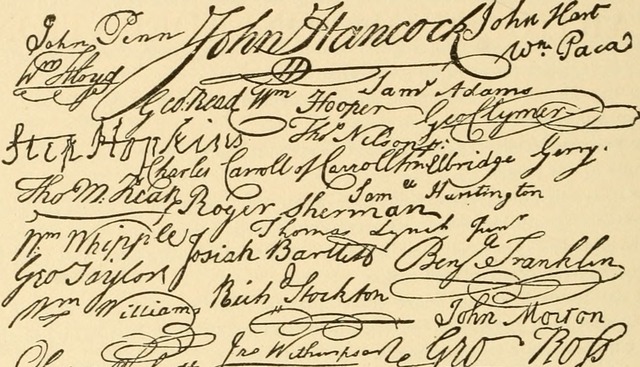 John Penn John Hancock John Hart
Wm Floyd Wm Paca
Saml Adams
Geo. Read Wm Hooper Geo Clymer
Step Hopkins Thos Nelson jr.
Charles Carroll of Carrollton Elbridge Gerry.
Tho M: Kean Roger Sherman Saml Huntington
Wm Whipple Thomas Lynch Junr
Josiah Bartlett Benja Franklin
Geo Taylor
Richd Stockton
Wm Williams John Morton
Jno Witherspoon Geo Ross